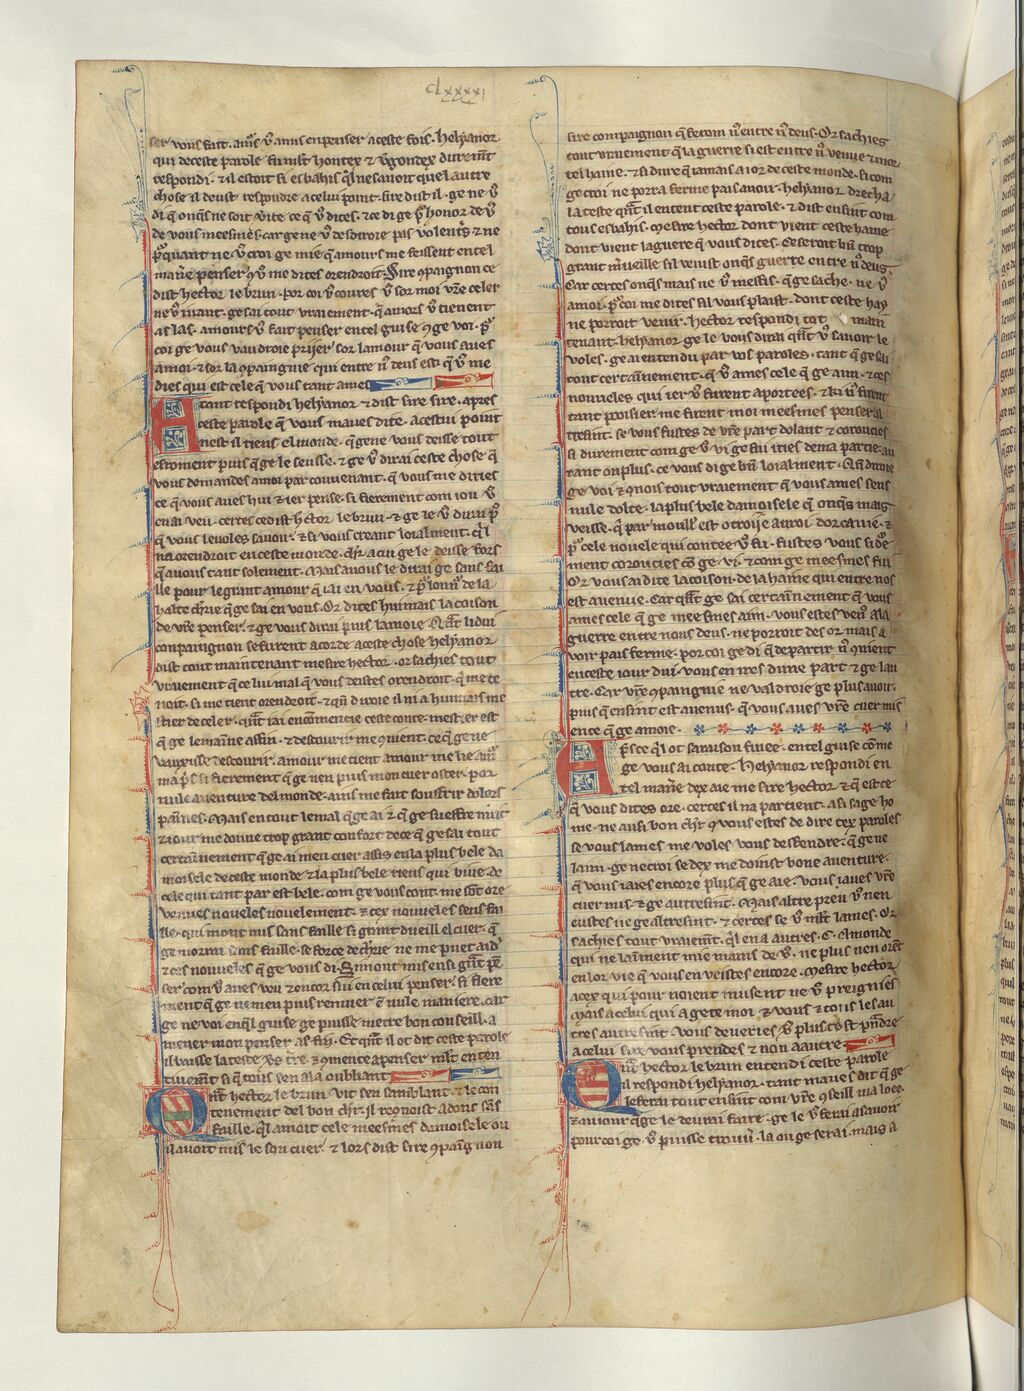 clxxxxi
ser vous fait. ains v̄ amis en penser a ceste fois. helyanor
qui de ceste parole fu mlt hontex & v̄gondex durem̄t
respondi. & il estoit si esbahis q̄l ne savoit quel autre
chose il deust respondre a celui point. sire dist il. ge ne v̄
di q̄ onq̄s ne soit v̄ite ce q̄ v̄ dites. & ce di ge p̄ honor de v̄
de vous meesmes. car ge ne v̄ desdiroie pas volent̄s & ne
p̄quant ne v̄ croi ge mie q̄ amours me feissent en tel
manīe penser 9̄ v̄ me dites orendroit. Sire 9paignon ce
dist hector le brun. por coi v̄ coures v̄ sor moi v̄re celer
ne v̄ vaut. ge sai tout vraiement q̄ amors v̄ tienent
as las. amours v̄ fait penser en tel guise 9 ge voi. p̄
coi ge vous vaudroie prijer sor lamour q̄ vous aves
a moi. & sor la 9paingnie qui entre n̄ deus est q̄ v̄ me
dies qui est cele q̄ vous tant ames
A tant respondi helyanor & dist sire sire. apres
ceste parole q̄ vous maves dite. a cestui point
nest il riens el monde. q̄ ge ne vous deisse tout
estroment puis q̄ ge le seusse. & ge v̄ dirai ceste chose q̄
vous demandes a moi par convenant. q̄ vous me diries
ce q̄ vous aves hui & ier pense. si fierement com iou v̄
en ai veu. certes ce dist hector le brun. & ge le v̄ dirai p̄
q̄ vous le voles savoir. & si vous creant loialment. q̄l
na orendroit en ceste monde. ch̄r a cui ge le deisse fors
q̄ a vous tant solement. Mais a vous le dirai ge sans fai
lle pour le grant amour q̄ iai en vous. & p̄ lonor de la
halte ch̄rie q̄ ge sai en vous. Or dites huimais la coison
de v̄re penser. & ge vous dirai puis la moie. Qn̄t li dui
compaingnon se furent acorde a ceste chose helyanor
dist tout maintenant mesire hector. or sachies tout
vraiement q̄ celui mal q̄ vous deistes orendroit. q̄ me te
noit. si me tient orendroit. & q̄n diroie il ni a huimais me
stier de celer. qn̄t iai encōmencie ceste conte. mestier est
q̄ ge le maine a fin. & descouvrir me 9vient. ce q̄ ge ne
vausisse descouvrir. amour me tient amour me lie am̄
ma p̄s si fierement q̄ ge nen puis mon cuer oster. por
nule aventure del monde. ains me fait souffrir dolors
& paines. Mais en tout le mal q̄ ge ai & q̄ ge sueffre nuit
& iour me doune trop grant confort de ce q̄ ge sai tout
certainement q̄ ge ai meu cuer assis en la plus bele da
moisele de ceste monde & la plus bele riens qui vive. de
cele qui tant par est bele. com ge vous cont. me sōt ore
venues noveles novelement. & tex nouveles sens fai
lle. qui mont mis dans faille si grant dueil el cuer. q̄
ge morrai sans faille. se force de ch̄rie ne me puet aid̄
& ces nouveles q̄ ge vous di. Si mont mis en si gn̄t pē
ser com v̄ aves veu & encor sui en celui penser. si fiere
ment q̄ ge ne men puis remuer ē nule maniere. car
ge ne voi en q̄l guise ge puisse metre bon conseill. a
mener mon penser a fin. Et qn̄t il ot dit ceste parole
il baisse la teste v̄s t̄re. & 9mence a penser mlt enten
tivem̄t si q̄ tous sen ala oubliant
Qn̄t hector le brun vit sen samblant. & le con
tenement del bon ch̄r. il reqnoist adons sās
faille. q̄l amoit cele meesmes damoisele ou
il avoit mis le son cuer. & lors dist sire 9paīgnon
sire compaignon q̄ ferom n̄ entre n̄ deus. Or sachies
tout vraiement q̄ la guerre si est entre n̄ venue & mor
tel haine. & si dure q̄ iamais a ior de ceste monde. si com
ge croi ne porra ferme pais avoir. helyanor drecha
la teste qn̄t il entent ceste parole. & dist ensint com
tous esbahis. mesire hector dont vient ceste haine
dont vient la guere q̄ vous dites. ce seroit bn̄ trop
grant m̄veille sil venist onq̄s guerre entre n̄ deus.
Car certes onq̄s mais ne v̄ meffis. q̄ ge sache. ne v̄
a moi. p̄ coi me dites sil vous plaist. dont ceste hay
ne porroit venir. hector respondi tot main
tenant. helyanor ge le vous dirai qn̄t v̄ savoir le
voles. ge ai entendu par vos paroles. tant q̄ ge sai
tout certainement. q̄ v̄ ames cele q̄ ge aim. & ces
nouveles qui ier v̄ furent aportees. & ki v̄ furent
tant poisier me furent moi meesmes penser a
tresint. se vous fustes de v̄re part dolant & corroucies
si durement com ge v̄ vi ge fui itiel de ma partie. au
tant ou plus. ce vous di ge bn̄ loialment. A q̄n diroie
ge voi & 9nois tout vraiement q̄ vous ames sens
nule dolte. la plus bele damoisele q̄ onq̄s mais
veisse. q̄ par mouill est otroije au roi dorcanie. &
p̄ cele novele qui contee v̄ fu. fustes vous si dē
ment corroucies cō ge vi. & com ge meesmes fui
Or vous ai dite la coison. de la haine qui entre nos
est avenue. Car qn̄t ge sai certainement q̄ vous
ames cele q̄ ge meesmes aim. vous estes ven̄ a la
guerre entre nous deus. ne porroit des or mais a
voir pais ferme. por coi ge di q̄ departir n̄ 9vient
en ceste iour dui. vous en ires dune part & ge lau
tre. Car v̄re 9paingnie ne valdroie ge plus avoir.
puis q̄ ensint est avenu. q̄ vous aves v̄re cuer mis
en ce q̄ ge amoie.
Ap̄s ce q̄l ot sa raison finee. en tel guise cō me
ge vous ai conte. helyanor respondi en
tel manīe dex aie me sire hector & q̄ est ce
q̄ vous dites ore. certes il na partient. a si sage ho
me. ne a usi bon ch̄r 9 vous estes de dire tex paroles
se vous lames me voles vous desfendre. q̄ ge ne
laim. ge ne croi se dex me doinst bone aventure.
q̄ vous iaies encore plus q̄ ge aie. vous iaves v̄re
cuer mis. & ge autresint. Mais altre preu v̄ nen
eustes ne ge altresint. & certes se v̄ mlt lames. Or
sachies tout vraiem̄t. q̄l en a autres .c. el monde
qui ne laim̄ent mie mains de v̄. ne plus nen orēt
en lor vie q̄ vous en veistes encore. mesire hector
a cex qui pour noient musent ne v̄ preignies
Mais a celui qui a gete moi. & vous & tous les au
tres autresint. vous deveries v̄ plus tost pn̄dre
a celui sire vous prendes & non a autre
Qn̄t hector le brun entendi ceste parole
il respondi helyanor. tant maves dit q̄ ge
le ferai tout ensint com v̄re 9seill ma loee.
& a tiour q̄ ge le devrai faire. ge le v̄ ferai a savoir
pour coi ge v̄ puisse trouv̄. la ou ge serai. mais a